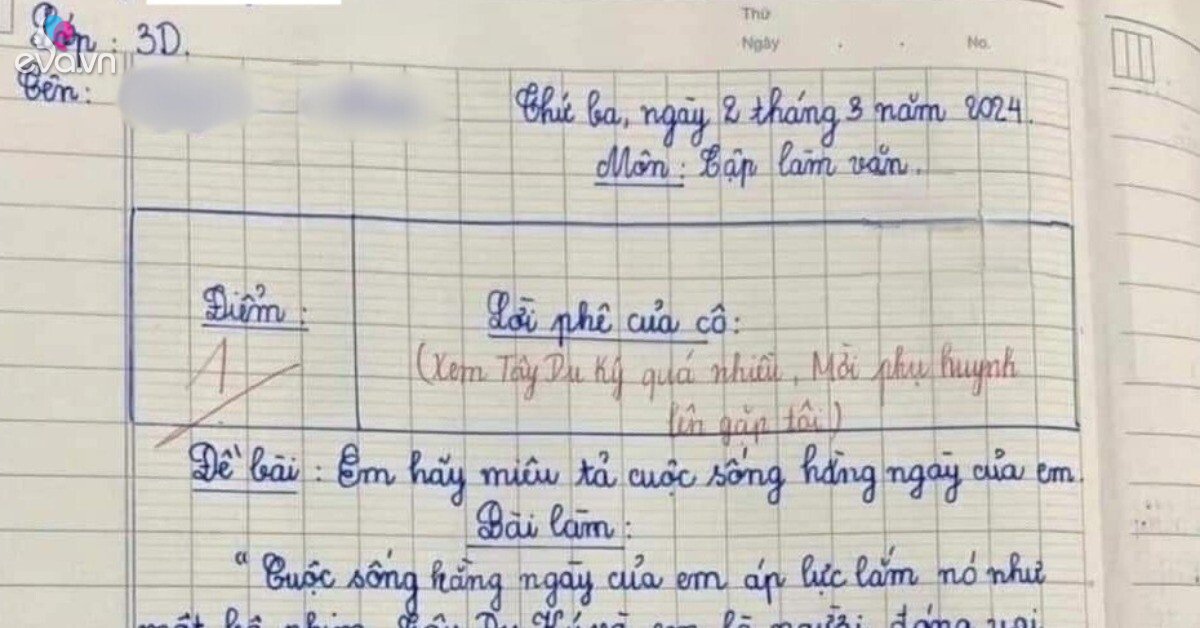 Thứ
Lớp : 3D.
Ngày . . No.
eva.vn
Tên :
Thứ ba, ngày 2 tháng 3 năm 2024.
Môn : Tập làm văn.
Điểm : Lời phê của cô :
1 (Xem Tây Du Ký quá nhiều, Mời phụ huynh
lên gặp tôi)
Đề bài : Em hãy miêu tả cuộc sống hằng ngày của em.
Bài làm :
"Cuộc sống hằng ngày của em áp lực lắm nó như
một bộ phim Tây Du Ký và em là người đóng vai